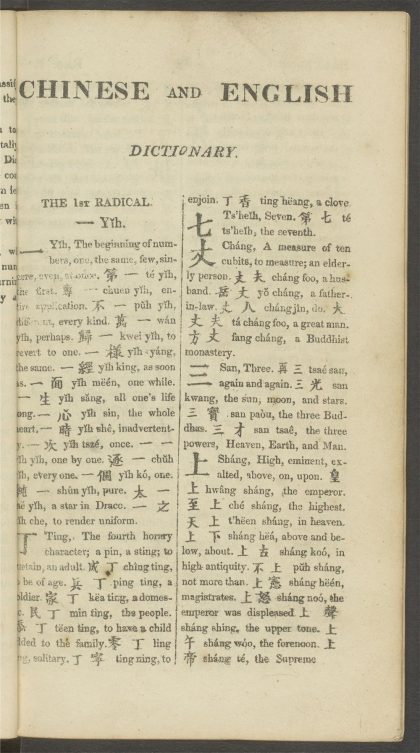 CHINESE AND ENGLISH
DICTIONARY.
THE 1ST RADICAL.
一 Yĭh.
一 Yĭh, The beginning of num-
bers, one, the same, few, sin-
cere, even, at once. 第 一 té yĭh,
the first. 專 一 chuen yĭh, en-
tire application. 不 一 pŭh yĭh,
different, every kind. 萬 一 wán
yĭh, perhaps. 歸 一 kwei yĭh, to
revert to one. 一 樣 yĭh yáng,
the same. 一 經 yĭh king, as soon
as. 一 面 yĭh mëén, one while.
一 生 yĭh sǎng, all one's life
long. 一 心 yĭh sin, the whole
heart. 一 時 yĭh shê, inadvertent-
ly. 一 次 yĭh tszé, once. 一 一
yĭh yĭh, one by one. 逐 一 chŭh
yĭh, every one. 一 個 yĭh kó, one.
純 一 shûn yĭh, pure. 太 一
yĭh, a star in Draco. 一 之
yĭh che, to render uniform.
丁 Ting, The fourth horary
character; a pin, a sting; to
an adult. 成 丁 ching ting,
to be of age. 兵 丁 ping ting, a
soldier. 家 丁 këa ting, a domes-
tic. 民 丁 min ting, the people.
添 丁 tëen ting, to have a child
added to the family. 零 丁 ling
ting, solitary. 丁 寧 ting ning, to
enjoin. 丁 香 ting hëang, a clove.
七 Ts'heĭh, Seven. 第 七 té
ts'heĭh, the seventh.
丈 Cháng, A measure of ten
cubits, to measure; an elder-
ly person. 丈 夫 cháng foo, a hus-
band. 岳 丈 yŏ cháng, a father-
in-law. 丈 人 cháng jin, do. 大
丈 夫 tá cháng foo, a great man.
方 丈 fang cháng, a Buddhist
monastery.
三 San, Three. 再 三 tsaé san,
again and again. 三 光 san
kwang, the sun, moon, and stars.
三 寶 san paòu, the three Bud-
dhas. 三 才 san tsaê, the three
powers, Heaven, Earth, and Man.
上 Sháng, High, eminent, ex-
alted, above, on, upon. 皇
上 hwâng sháng, the emperor.
至 上 ché sháng, the highest.
天 上 t'hëen sháng, in heaven.
上 下 sháng hëá, above and be-
low, about. 上 古 sháng koó, in
high antiquity. 不 上 pŭh sháng,
not more than. 上 憲 sháng hëén,
magistrates. 上 怒 sháng noó, the
emperor was displeased. 上 聲
sháng shing, the upper tone. 上
午 sháng wòo, the forenoon. 上
帝 sháng té, the Supreme